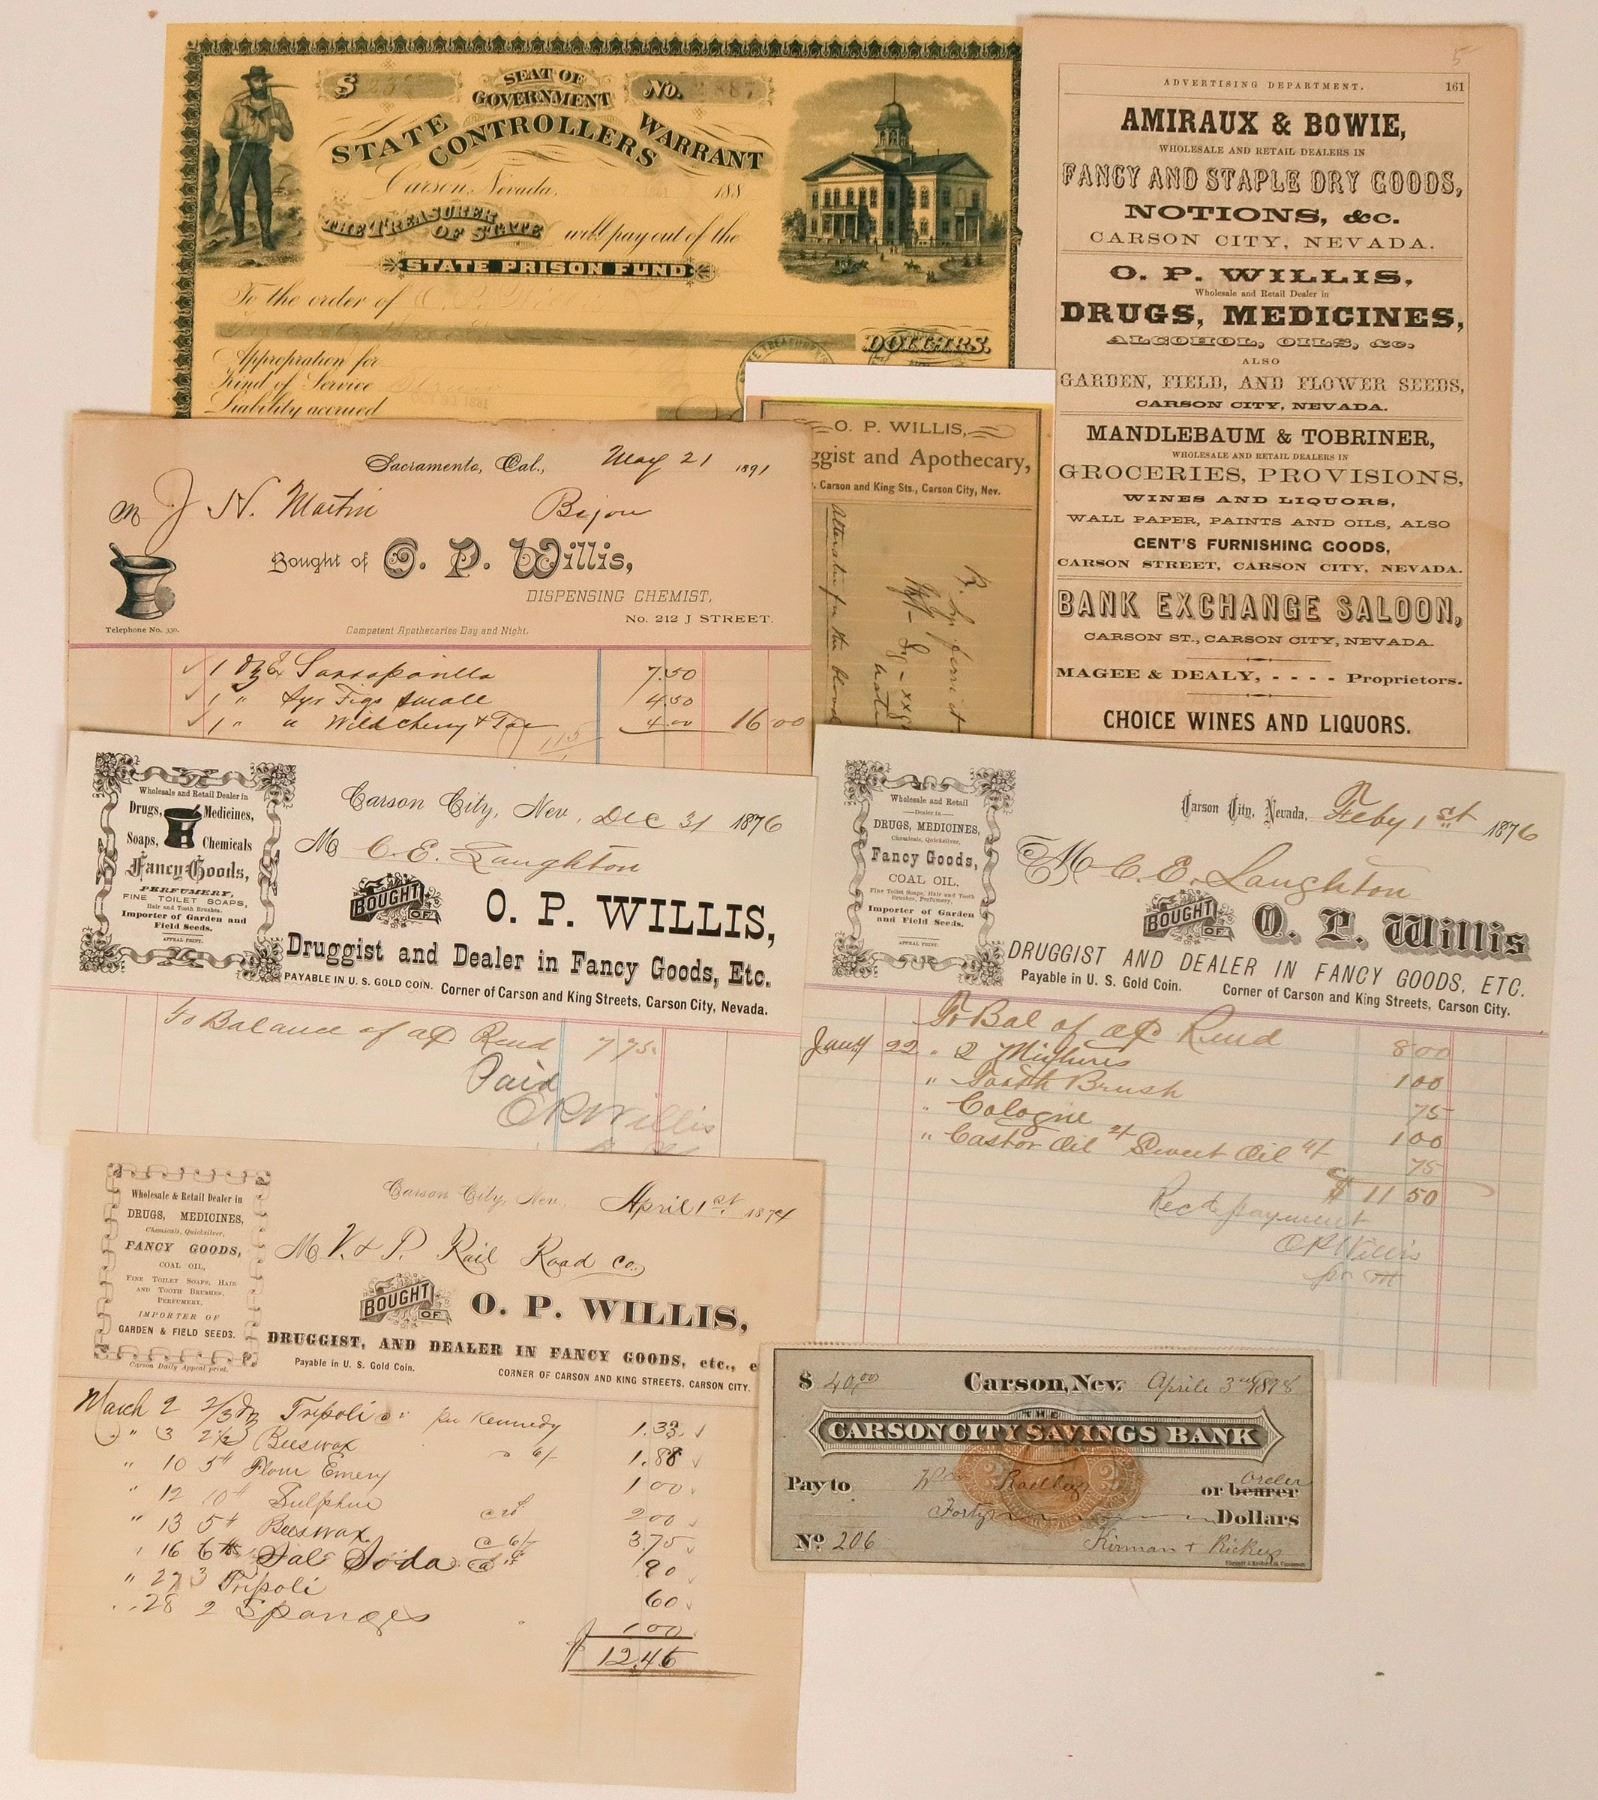 $
SEAT OF
GOVERNMENT
No. 2887
STATE
CONTROLLERS
WARRANT
Carson, Nevada, 188
THE TREASURER
OF STATE will pay out of the
STATE PRISON FUND
To the order of O. P.
DOLLARS.
Appropriation for
Kind of Service
Liability accrued
5
ADVERTISING DEPARTMENT. 161
AMIRAUX & BOWIE,
WHOLESALE AND RETAIL DEALERS IN
FANCY AND STAPLE DRY GOODS,
NOTIONS, &c.
CARSON CITY, NEVADA.
O. P. WILLIS,
Wholesale and Retail Dealer in
DRUGS, MEDICINES,
ALCOHOL, OILS, &c.
ALSO
GARDEN, FIELD, AND FLOWER SEEDS,
CARSON CITY, NEVADA.
MANDLEBAUM & TOBRINER,
WHOLESALE AND RETAIL DEALERS IN
GROCERIES, PROVISIONS,
WINES AND LIQUORS,
WALL PAPER, PAINTS AND OILS, ALSO
GENT'S FURNISHING GOODS,
CARSON STREET, CARSON CITY, NEVADA.
BANK EXCHANGE SALOON,
CARSON ST., CARSON CITY, NEVADA.
MAGEE & DEALY, - - - - Proprietors.
CHOICE WINES AND LIQUORS.
O. P. WILLIS,
ggist and Apothecary,
. Carson and King Sts., Carson City, Nev.
Sacramento, Cal., May 21 1891
M J. N. Martin Bijou
Bought of O. P. Willis,
DISPENSING CHEMIST,
No. 212 J STREET.
Telephone No. 330.
Competent Apothecaries Day and Night.
1 Dz Sarsaparilla 7.50
1 " Syr Figs small 4.50
1 " " Wild Cherry & Tar 4.00 16 00
Wholesale and Retail Dealer in
Drugs, Medicines,
Soaps, Chemicals
Fancy Goods,
PERFUMERY,
FINE TOILET SOAPS,
Hair and Tooth Brushes.
Importer of Garden and
Field Seeds.
APPEAL PRINT.
Carson City, Nev, Dec 31 1876
M C. E. Laughton
BOUGHT OF
O. P. WILLIS,
Druggist and Dealer in Fancy Goods, Etc.
PAYABLE IN U. S. GOLD COIN. Corner of Carson and King Streets, Carson City, Nevada.
To Balance of a/c Rend 7 75
Paid
O P Willis
Wholesale and Retail
Dealer in
DRUGS, MEDICINES,
Chemicals, Quicksilver,
Fancy Goods,
COAL OIL,
Fine Toilet Soaps, Hair and Tooth
Brushes, Perfumery,
Importer of Garden
and Field Seeds.
APPEAL PRINT.
Carson City, Nevada, Feby 1st 1876
M C. E. Laughton
BOUGHT OF
O. P. Willis
DRUGGIST AND DEALER IN FANCY GOODS, ETC.
Payable in U. S. Gold Coin. Corner of Carson and King Streets, Carson City.
To Bal of a/c Rend 8 00
Jany 22 " 2 Mixtures 1 00
" Tooth Brush 75
" Cologne 1 00
" Castor Oil Sweet Oil 75
$ 11 50
Recd payment
O P Willis
Wholesale & Retail Dealer in
DRUGS, MEDICINES,
Chemicals, Quicksilver,
FANCY GOODS,
COAL OIL,
FINE TOILET SOAPS, HAIR
AND TOOTH BRUSHES,
PERFUMERY.
IMPORTER OF
GARDEN & FIELD SEEDS.
Carson Daily Appeal print.
Carson City, Nev, April 1st 1874
M V. & T. Rail Road Co.
BOUGHT OF
O. P. WILLIS,
DRUGGIST, AND DEALER IN FANCY GOODS, etc., e
Payable in U. S. Gold Coin. CORNER OF CARSON AND KING STREETS, CARSON CITY.
March 2 2/3 Dz Tripoli per Kennedy 1.33
" 3 2 1/2 Beeswax 1.88
" 10 5 Flour Emery 1 00
" 12 10 Sulphur 2 00
" 13 5 Beeswax 3.75
" 16 6 Sal Soda 90
" 27 3 Tripoli 60
" 28 2 Sponges 1 00
$ 12.46
$ 40.00 Carson, Nev. April 3rd 1878
THE
CARSON CITY SAVINGS BANK
Pay to or bearer order
Forty Dollars
No 206 Kirman & Rickey